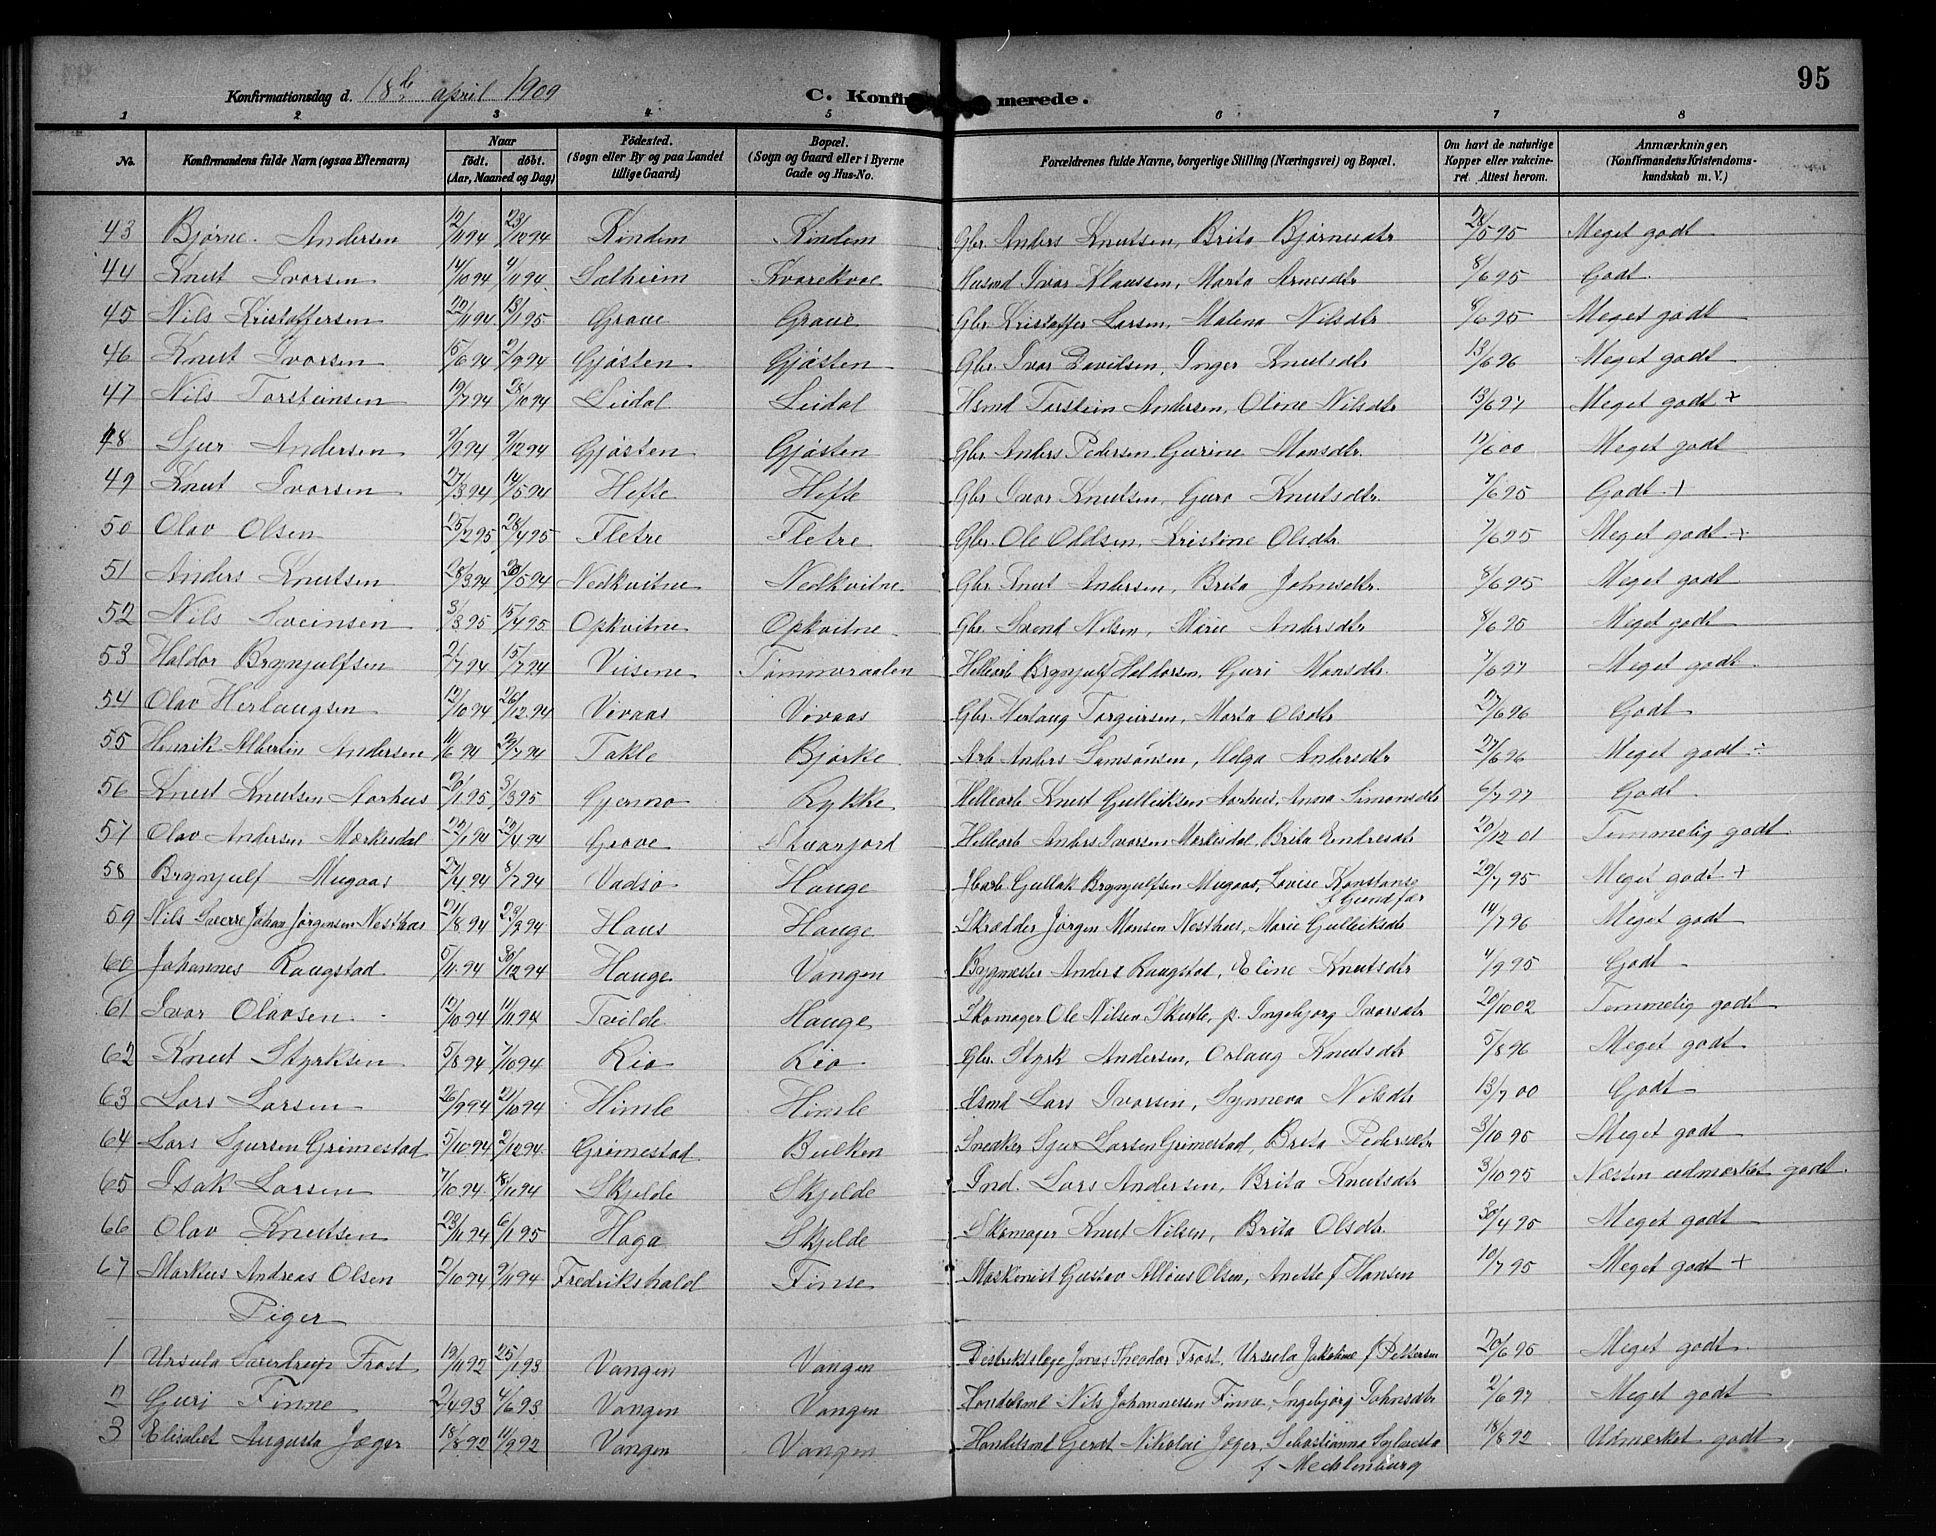 95
Konfirmationsdag d. 18de april 1909
C. Konfirmerede.
1 2 3 4 5 6 7 8
No. | Konfirmandens fulde Navn (ogsaa Efternavn) | Naar født. døbt. (Aar, Maaned og Dag) | Fødested. (Sogn eller By og paa Landet tillige Gaard) | Bopæl. (Sogn og Gaard eller i Byerne Gade og Hus-No. | Forældrenes fulde Navne, borgerlige Stilling (Næringsvei) og Bopæl. | Om havt de naturlige Kopper eller vakcineret. Attest herom. | Anmærkninger, (Konfirmandens Kristendomskundskab m. V.)
43 Bjørne Andersen 12/11 94 23/12 94 Rindem Rindem Gbr. Anders Knutsen, Brita Bjørnesdtr 28/5 95 Meget godt
44 Knut Ivarsen 14/10 94 4/11 94 Salheim Kvarekval Husmd Ivar Klaussen, Marta Arnesdtr 8/6 95 Godt
45 Nils Kristoffersen 22/11 94 13/1 95 Grove Grove Gbr. Kristoffer Larsen, Malena Nilsdtr 8/6 95 Meget godt
46 Knut Ivarsen 15/6 94 2/9 94 Gjøsten Gjøsten Gbr. Ivar Davidsen, Inger Knutsdtr 13/6 96 Meget godt
47 Nils Torsteinsen 19/7 94 28/10 94 Leidal Leidal Hsmd Torstein Andersen, Oline Nilsdtr 13/6 97 Meget godt +
48 Sjur Andersen 9/9 94 9/12 94 Gjøsten Gjøsten Gbr. Anders Pedersen, Gurine Monsdtr. 17/6 00 Meget godt
49 Knut Ivarsen 27/3 94 14/5 94 Hefte Hefte Gbr. Ivar Knutsen, Guro Knutsdtr. 7/6 95 Godt +
50 Olav Olsen 25/2 95 28/4 95 Fletre Fletre Gbr. Ole Oddsen, Kristine Olsdtr. 7/6 95 Meget godt +
51 Anders Knutsen 28/3 94 20/5 94 Nedkvitne Nedkvitne Gbr. Knut Andersen, Brita Johnsdtr. 8/6 95 Meget godt
52 Nils Sveinsen 3/3 95 15/4 95 Opkvitne Opkvitne Gbr. Svend Nilsen, Marie Andersdtr 8/6 95 Meget godt
53 Haldor Brynjulfsen 2/7 94 15/7 94 Veisene Tømmeraalen Hellearb Brynjulf Haldorsen, Guri Monsdtr. 7/6 97 Meget godt
54 Olav Herlaugsen 12/10 94 26/12 94 Vivaas Vivaas Gbr. Herlaug Torgersen, Marta Olsdtr 27/6 96 Godt
55 Henrik Albertin Andersen 11/6 94 22/7 94 Takle Bjørke Arb Anders Samsonsen, Helga Andersdtr 27/6 96 Meget godt ÷
56 Knut Knutsen Aarhus 20/1 95 3/3 95 Gjermo Rykke Hellearb Knut Gulleiksen Aarhus, Anna Simonsdtr 6/7 97 Godt
57 Olav Andersen Mørkesdal 22/1 94 22/4 94 Grove Skvarjord Hellearb Anders Ivarsen Mørkesdal, Brita Endresdtr 20/12 01 Temmelig godt
58 Brynjulf Mugaas 27/4 94 8/7 94 Vadsø Hauge Jbarb Gullak Brynjulfsen Mugaas, Lovise Konstanse f Gundfær 29/7 95 Meget godt +
59 Nils Sverre Johan Jørgensen Nesthus 21/8 94 23/9 94 Haus Hauge Skrædder Jørgen Monsen Nesthus, Marie Gulleiksdtr 14/7 96 Meget godt
60 Johannes Raugstad 5/11 94 30/12 94 Hauge Vangen Bygmester Anders Raugstad, Eline Knutsdtr 4/9 95 Godt
61 Ivar Olavsen 12/10 94 11/11 94 Tvilde Hauge Skomager Ole Nilsen Skutle, p. Ingebjørg Ivarsdtr 20/10 02 Temmelig godt
62 Knut Styrksen 5/8 94 7/10 94 Rio Rio Gbr Styrk Andersen, Orlaug Knutsdtr 5/8 96 Meget godt
63 Lars Larsen 26/9 94 21/10 94 Himle Himle Hsmd Lars Ivarsen, Synneva Nilsdtr 13/7 00 Godt
64 Lars Sjursen Grimestad 5/10 94 2/12 94 Grimestad Bulken Snedker Sjur Larsen Grimestad, Brita Pedersdtr 3/10 95 Meget godt
65 Isak Larsen 7/10 94 18/11 94 Skjelde Skjelde Ind. Lars Andersen, Brita Knutsdtr 3/10 95 Næsten udmærket godt
66 Olav Knutsen 23/11 94 6/1 95 Haga Skjelde Skomager Knut Nilsen, Brita Olsdtr 30/4 95 Meget godt
67 Markus Andreas Olsen 2/10 94 9/11 94 Fredrikshald Finse Maskinist Gustav Olsen, Anette f Hansen 10/7 95 Meget godt +
Piger
1 Ursula Frost 19/11 92 25/1 93 Vangen Vangen Distriktslæge Jonas Theodor Frost, Ursula Jakobine f Pettersen 20/6 95 Meget godt
2 Guri Finne 2/4 93 4/6 93 Vangen Vangen Handelsmd Nils Johannessen Finne, Ingebjørg Johnsdtr 2/6 97 Meget godt
3 Elisabet Augusta Jæger 18/8 92 11/9 92 Vangen Vangen Handelsmd Gerdt Nikolai Jæger, Sebastianna Sylvesta f Mecklenburg 18/8 92 Udmærket godt